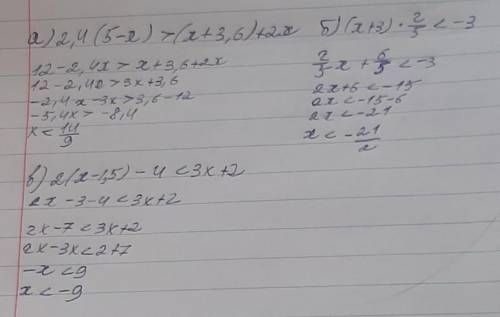 а) 2,4(5-x) > (x+3,6)+2x
12-2,4x > x+3,6+2x
12-2,4x > 3x+3,6
-2,4x-3x > 3,6-12
-5,4x > -8,4
x < 14/9
б) (x+3) · 2/5 < -3
2/5x + 6/5 < -3
2x+6 < -15
2x < -15-6
2x < -21
x < -21/2
в) 2(x-1,5) - 4 < 3x+2
2x-3-4 < 3x+2
2x-7 < 3x+2
2x-3x < 2+7
-x < 9
x < -9